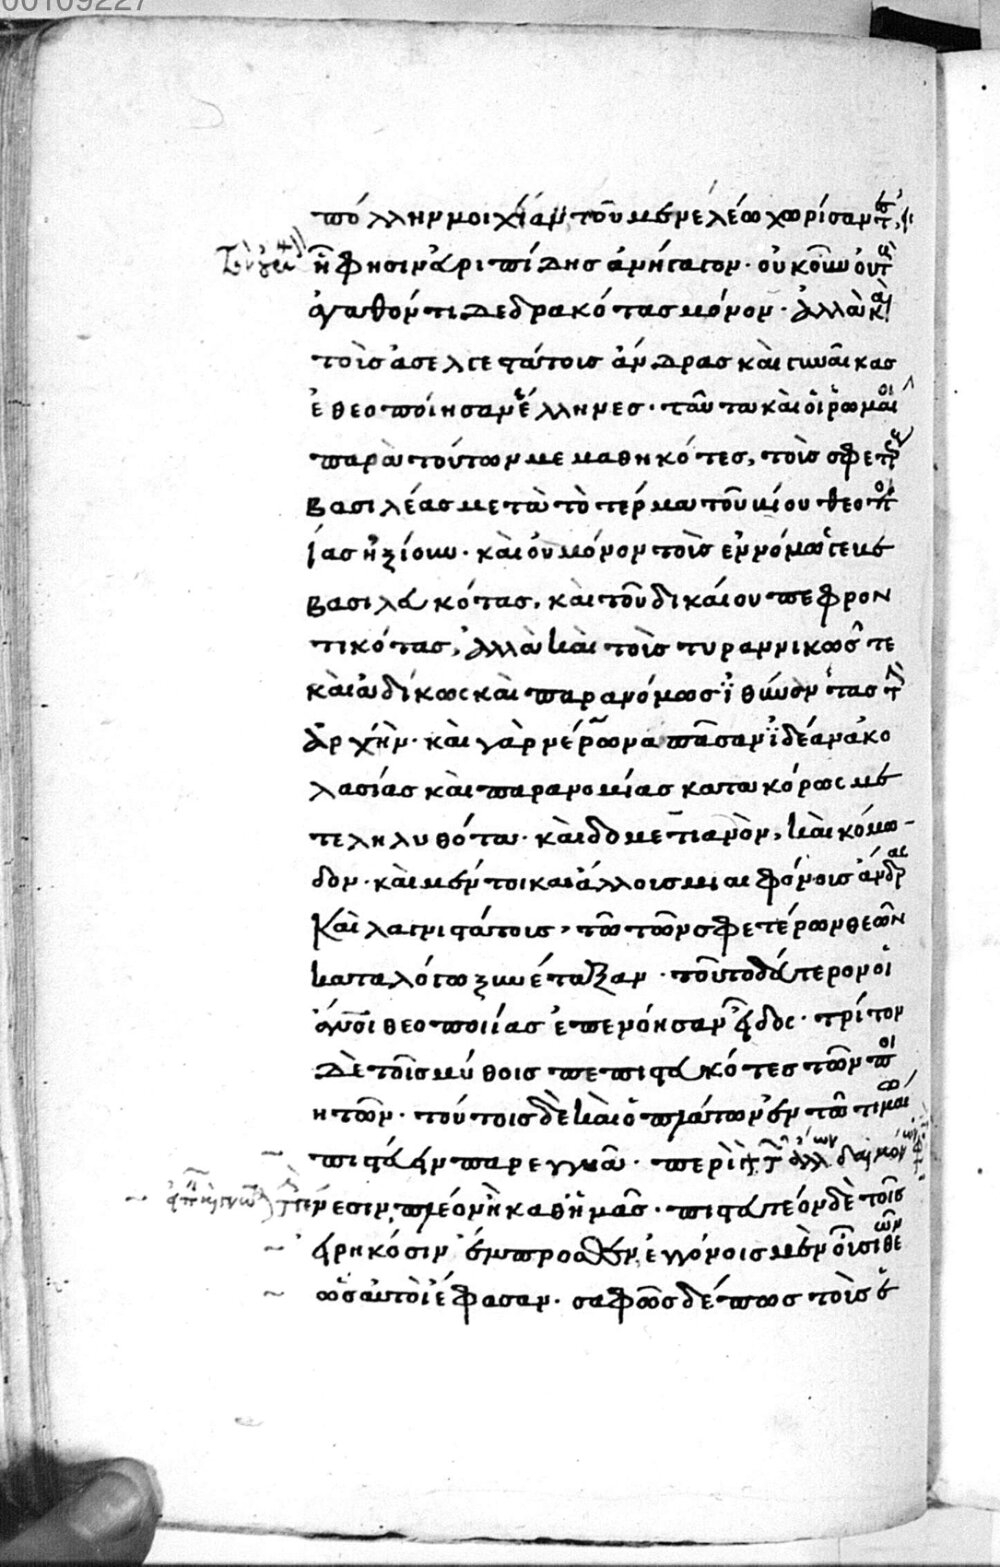 00109227
πόλλην μοιχίαν τοῦ Μενελέω χωρίσαντ
ἥ φησιν Εὐριπίδης ἀμήτατον. οὐκοῦν οὐ τ
ἀγαθόν τι δεδρακότας μόνον. ἀλλὰ καὶ
τοῖς ἀσελγεστάτοις ἄνδρας καὶ γυναῖκας
ἐθεοποίησαν ἕλληνες. ταῦτα καὶ οἱ ῥωμαῖοι
παρὰ τούτων μεμαθηκότες, τοὺς σφετέρ
βασιλέας μετὰ τὸ τέρμα τοῦ βίου θεοποι
ίας ἠξίουν. καὶ οὐ μόνον τοὺς ἐννόμως γε
βασιλευκότας, καὶ τοῦ δικαίου πεφρον
τικότας, ἀλλὰ καὶ τοὺς τυραννικῶς τε
καὶ ἀδίκως καὶ παρανόμως ἰθύναντας τὴν
ἀρχήν. καὶ γὰρ νέρωνα πᾶσαν ἰδέαν ἀκο
λασίας καὶ παρανομίας κατακόρως με
τεληλυθότα. καὶ δομετιανὸν, καὶ κόμο-
δον. καὶ μέντοι καὶ ἄλλους μιαιφόνους ἄνδρας
καὶ λαγνιστάτους, τῷ τῶν σφετέρων θεῶν
καταλόγω ξυνέταξαν. τοῦτο δεύτερον οἱ
ἄνοι θεοποιίας ἐπενόησαν εἶδος. τρίτον
δὲ τοῖς μύθοις πεπιστευκότες τῶν ποι
ητῶν. τούτοις δὲ καὶ ὁ πλάτων ἐν τῶ τιμαίω
πιστεύειν παρεγγυᾶ. περὶ τῶν ἄλλων δαιμόνων
εἰπεῖν καὶ γνῶναι τὴν γένεσιν, πλέον ἢ καθ ἡμᾶς. πιστευτέον δὲ τοῖς
εἰρηκόσιν ἔμπροσθεν, ἐγγόνοις μὲν οὖσι θεῶν
ὡς αὐτοὶ ἔφασαν. σαφῶς δέ πως τοὺς ἑ